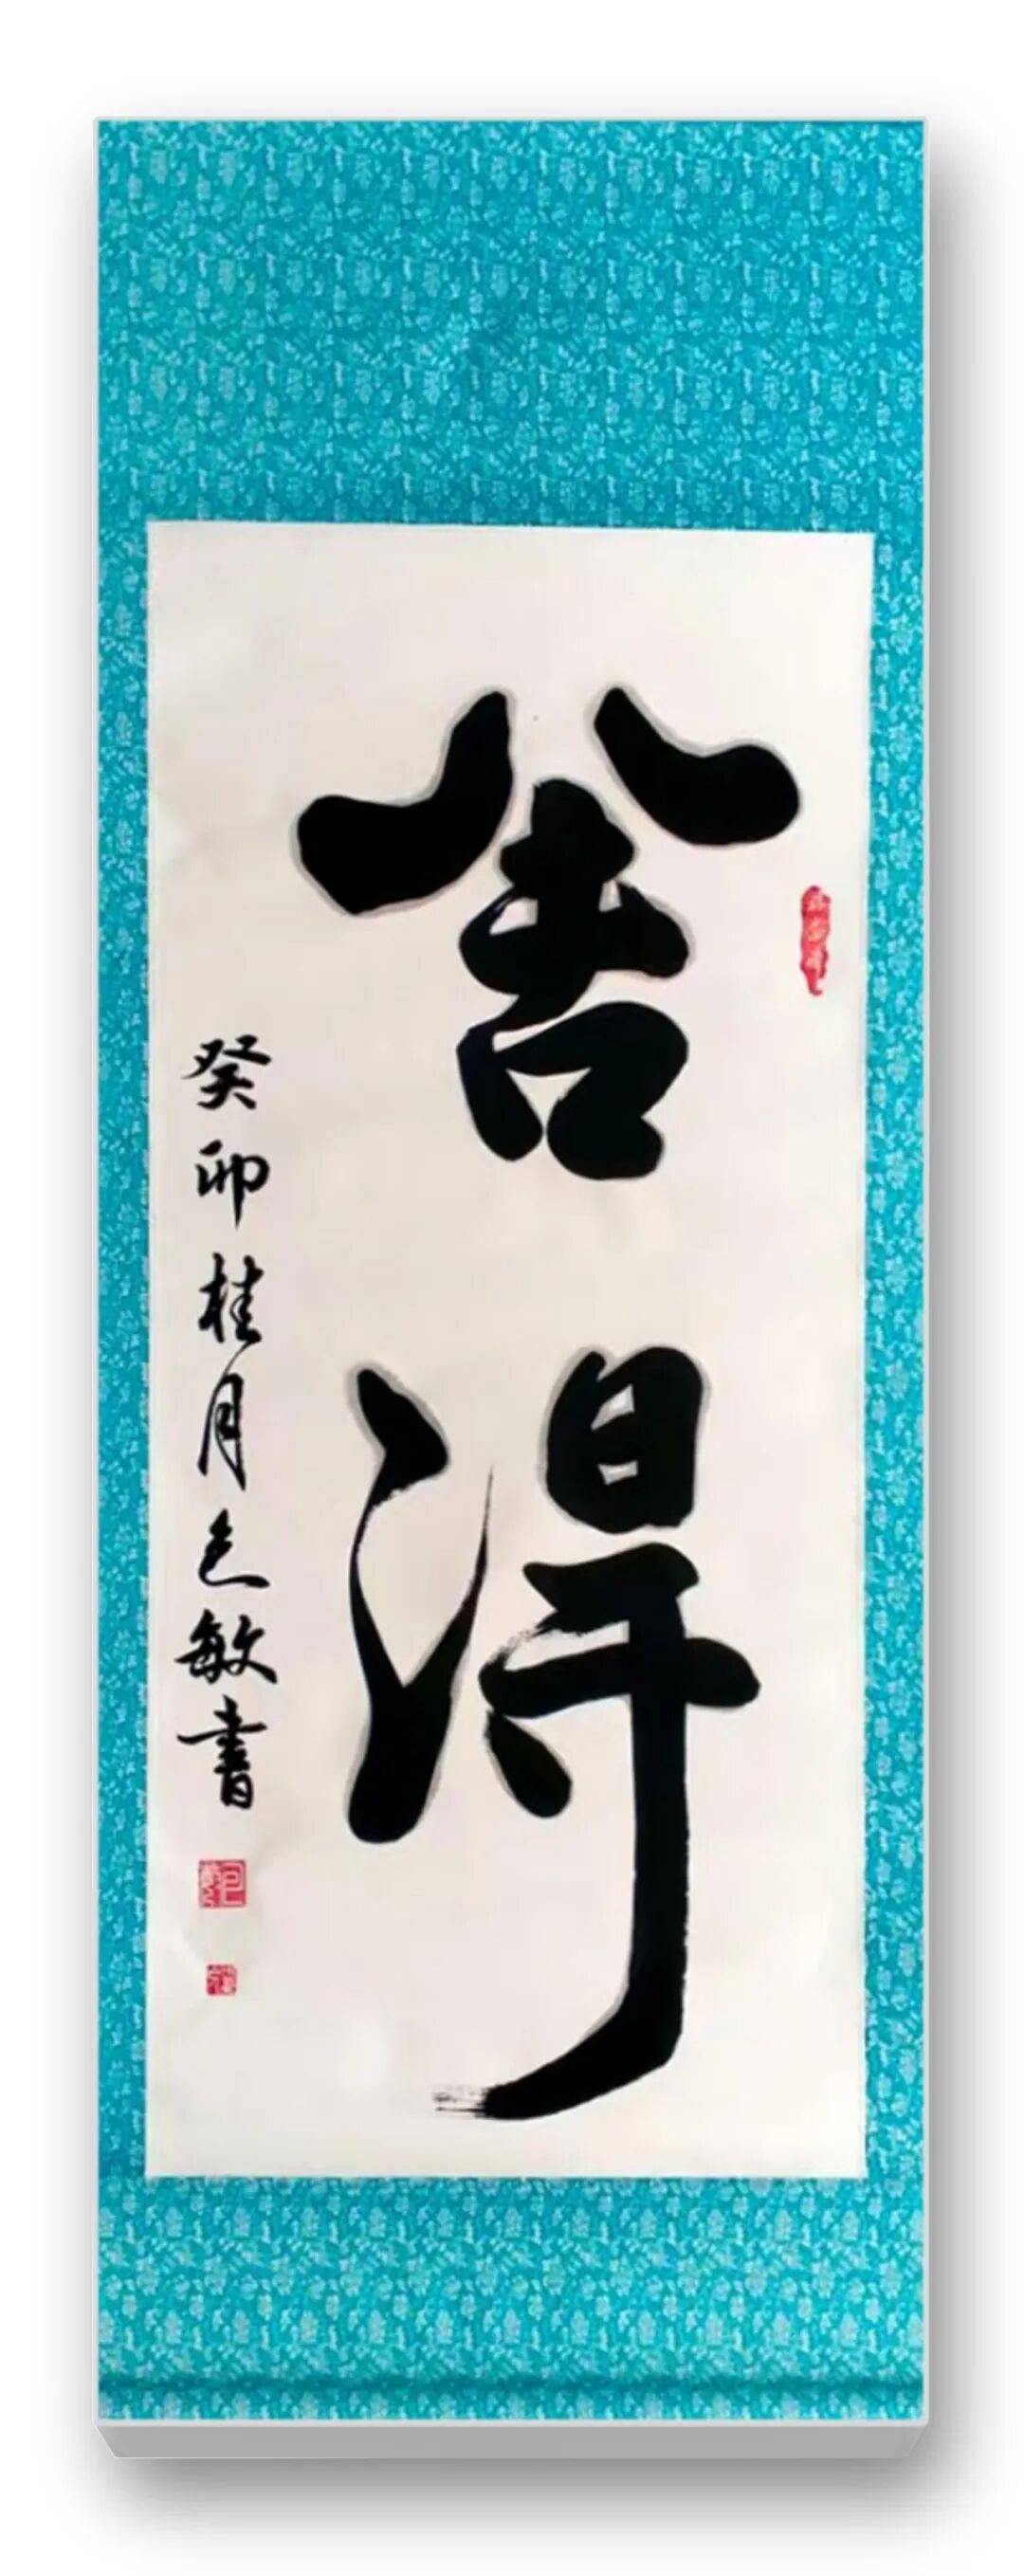 舍得
癸卯桂月包敏書